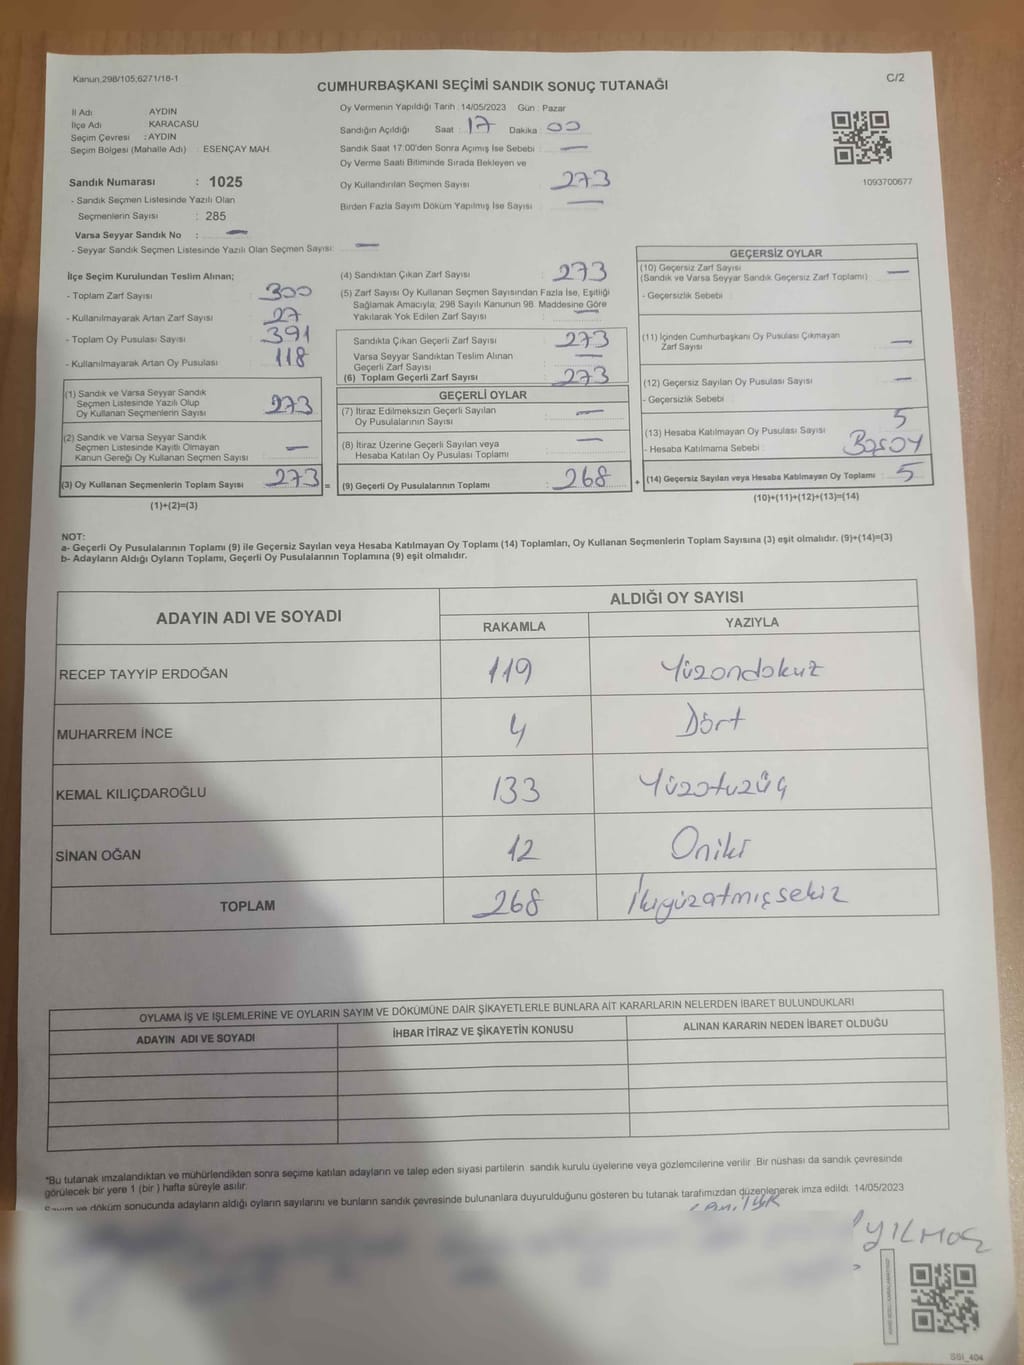 Kanun,298/105;6271/18-1
C/2
CUMHURBAŞKANI SEÇİMİ SANDIK SONUÇ TUTANAĞI
İl Adı AYDIN
İlçe Adı KARACASU
Seçim Çevresi : AYDIN
Seçim Bölgesi (Mahalle Adı) : ESENÇAY MAH.
Oy Vermenin Yapıldığı Tarih : 14/05/2023 Gün : Pazar
Sandığın Açıldığı Saat : 17 Dakika : 00
Sandık Saat 17:00'den Sonra Açımış İse Sebebi : —
Oy Verme Saati Bitiminde Sırada Bekleyen ve
Oy Kullandırılan Seçmen Sayısı 273
Birden Fazla Sayım Döküm Yapılmış İse Sayısı —
1093700677
Sandık Numarası : 1025
- Sandık Seçmen Listesinde Yazılı Olan
Seçmenlerin Sayısı : 285
Varsa Seyyar Sandık No : —
- Seyyar Sandık Seçmen Listesinde Yazılı Olan Seçmen Sayısı: —
İlçe Seçim Kurulundan Teslim Alınan;
- Toplam Zarf Sayısı 300
- Kullanılmayarak Artan Zarf Sayısı 27
- Toplam Oy Pusulası Sayısı 391
- Kullanılmayarak Artan Oy Pusulası 118
(1) Sandık ve Varsa Seyyar Sandık
Seçmen Listesinde Yazılı Olup
Oy Kullanan Seçmenlerin Sayısı 273
(2) Sandık ve Varsa Seyyar Sandık
Seçmen Listesinde Kayıtlı Olmayan
Kanun Gereği Oy Kullanan Seçmen Sayısı —
(3) Oy Kullanan Seçmenlerin Toplam Sayısı 273 =
(1)+(2)=(3)
(4) Sandıktan Çıkan Zarf Sayısı 273
(5) Zarf Sayısı Oy Kullanan Seçmen Sayısından Fazla İse, Eşitliği
Sağlamak Amacıyla; 298 Sayılı Kanunun 98. Maddesine Göre
Yakılarak Yok Edilen Zarf Sayısı —
Sandıkta Çıkan Geçerli Zarf Sayısı 273
Varsa Seyyar Sandıktan Teslim Alınan
Geçerli Zarf Sayısı —
(6) Toplam Geçerli Zarf Sayısı 273
GEÇERLİ OYLAR
(7) İtiraz Edilmeksizin Geçerli Sayılan
Oy Pusulalarının Sayısı —
(8) İtiraz Üzerine Geçerli Sayılan veya
Hesaba Katılan Oy Pusulası Toplamı —
(9) Geçerli Oy Pusulalarının Toplamı 268 +
GEÇERSİZ OYLAR
(10) Geçersiz Zarf Sayısı
(Sandık ve Varsa Seyyar Sandık Geçersiz Zarf Toplamı) —
- Geçersizlik Sebebi
(11) İçinden Cumhurbaşkanı Oy Pusulası Çıkmayan
Zarf Sayısı —
(12) Geçersiz Sayılan Oy Pusulası Sayısı —
- Geçersizlik Sebebi
(13) Hesaba Katılmayan Oy Pusulası Sayısı 5
- Hesaba Katılmama Sebebi
(14) Geçersiz Sayılan veya Hesaba Katılmayan Oy Toplamı : 5
(10)+(11)+(12)+(13)=(14)
NOT:
a- Geçerli Oy Pusulalarının Toplamı (9) ile Geçersiz Sayılan veya Hesaba Katılmayan Oy Toplamı (14) Toplamları, Oy Kullanan Seçmenlerin Toplam Sayısına (3) eşit olmalıdır. (9)+(14)=(3)
b- Adayların Aldığı Oyların Toplamı, Geçerli Oy Pusulalarının Toplamına (9) eşit olmalıdır.
ADAYIN ADI VE SOYADI
ALDIĞI OY SAYISI
RAKAMLA YAZIYLA
RECEP TAYYİP ERDOĞAN 119 Yüzondokuz
MUHARREM İNCE 4 Dört
KEMAL KILIÇDAROĞLU 133 Yüzotuzüç
SİNAN OĞAN 12 Oniki
TOPLAM 268 İkiyüzatmışsekiz
OYLAMA İŞ VE İŞLEMLERİNE VE OYLARIN SAYIM VE DÖKÜMÜNE DAİR ŞİKAYETLERLE BUNLARA AİT KARARLARIN NELERDEN İBARET BULUNDUKLARI
ADAYIN ADI VE SOYADI İHBAR İTİRAZ VE ŞİKAYETİN KONUSU ALINAN KARARIN NEDEN İBARET OLDUĞU
*Bu tutanak imzalandıktan ve mühürlendikten sonra seçime katılan adayların ve talep eden siyasi partilerin sandık kurulu üyelerine veya gözlemcilerine verilir. Bir nüshası da sandık çevresinde
görülecek bir yere 1 (bir) hafta süreyle asılır.
Sayım ve döküm sonucunda adayların aldığı oyların sayılarını ve bunların sandık çevresinde bulunanlara duyurulduğunu gösteren bu tutanak tarafımızdan düzenlenerek imza edildi. 14/05/2023
YILMAZ
SSI_404